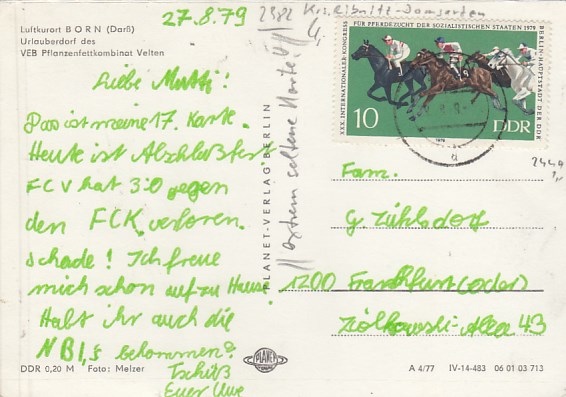 27.8.79
2382
Luftkurort BORN (Darß)
Urlauberdorf des
VEB Pflanzenfettkombinat Velten
Liebe Mutti!
Das ist meine 17. Karte.
Heute ist Abschlußfest
FCV hat 3:0 gegen
den FCK verloren.
schade! Ich freue
mich schon auf zu Haus.
Habt ihr auch die
NBI,s bekommen?
Tschüß
Euer Uwe
DDR 0,20 M Foto: Melzer
PLANET-VERLAG BERLIN
extrem seltene Karte
PLANET
XXX. INTERNATIONALER KONGRESS
FÜR PFERDEZUCHT DER SOZIALISTISCHEN STAATEN 1979
BERLIN-HAUPTSTADT DER DDR
10
DDR
2449
Fam.
G Zühlsdorf
1200 Frankfurt (oder)
Ziolkowski-Allee 43
A 4/77 IV-14-483 06 01 03 713